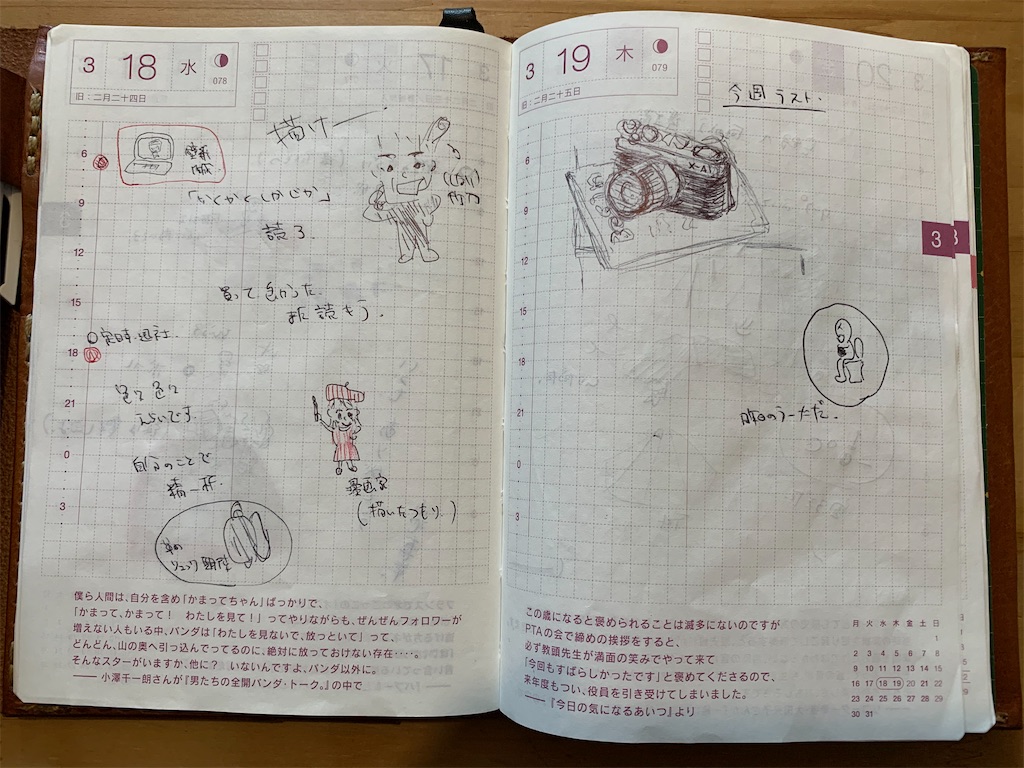 3 18 水
078
旧:二月二十四日
6
9
12
15
18
21
0
3
描けー
(しない)
竹刀
「かくかくしかじか」
読了.
買って良かった.
また読もう.
定時退社.
えらいです.
自分のことで
精一杯.
漫画家
(描いたつもり.)
革の
リュック
僕ら人間は、自分を含め「かまってちゃん」ばっかりで、
「かまって、かまって! わたしを見て!」ってやりながらも、ぜんぜんフォロワーが
増えない人もいる中、パンダは「わたしを見ないで、放っといて」って、
どんどん、山の奥へ引っ込んでってるのに、絶対に放っておけない存在‥‥。
そんなスターがいますか、他に? いないんですよ、パンダ以外に。
——小澤千一朗さんが『男たちの全開パンダ・トーク。』の中で
3 19 木
079
旧:二月二十五日
6
9
12
15
18
21
0
3
今週ラスト.
X-A1
昨日のうーただ.
3
3
この歳になると褒められることは滅多にないのですが
PTAの会で締めの挨拶をすると、
必ず教頭先生が満面の笑みでやって来て
「今回もすばらしかったです」と褒めてくださるので、
来年度もつい、役員を引き受けてしまいました。
——『今日の気になるあいつ』より
月 火 水 木 金 土 日
1
2 3 4 5 6 7 8
9 10 11 12 13 14 15
16 17 18 19 20 21 22
23 24 25 26 27 28 29
30 31